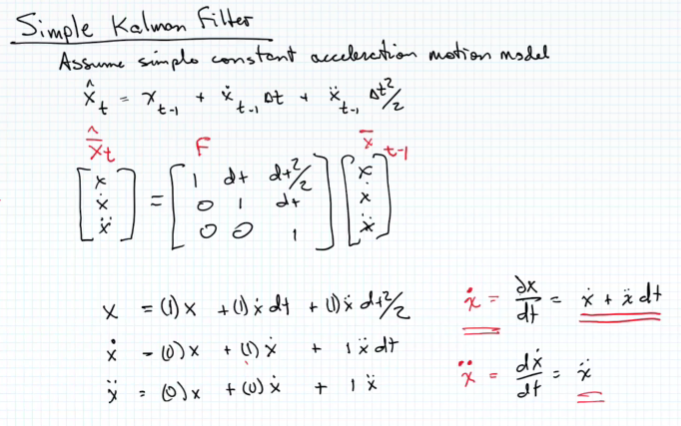 Simple Kalman Filter
Assume simple constant acceleration motion model
x̂_t = x_{t-1} + ẋ_{t-1} Δt + ẍ_{t-1} Δt²/2
x̄̂_t F x̄_{t-1}
[x ẋ ẍ] = [1 dt dt²/2; 0 1 dt; 0 0 1] [x ẋ ẍ]
x = (1)x + (1)ẋ dt + (1)ẍ dt²/2 ẋ = ∂x/dt = ẋ + ẍ dt
ẋ = (0)x + (1)ẋ + 1 ẍ dt
ẍ = (0)x + (0)ẋ + 1 ẍ ẍ = dẋ/dt = ẍ